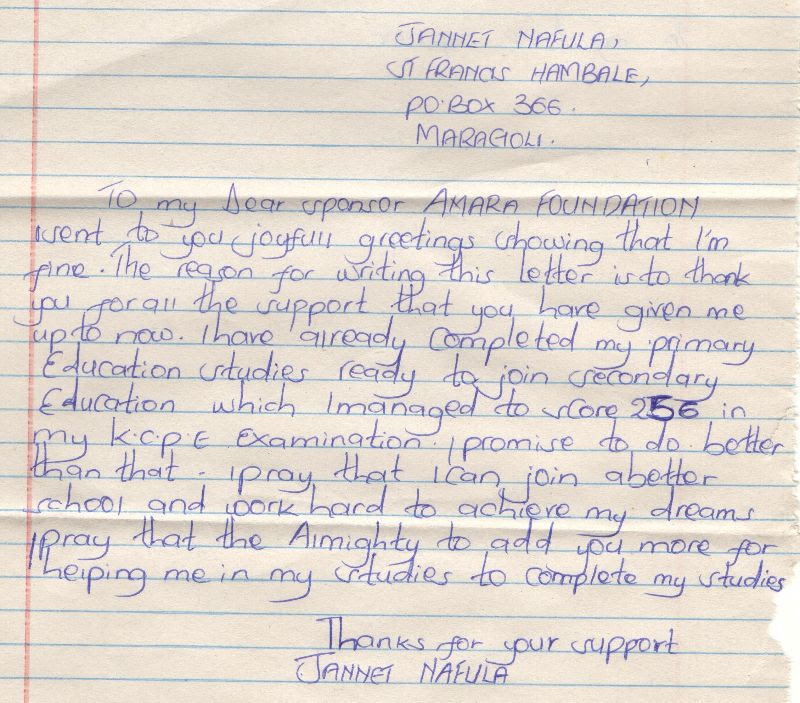 JANNET NAFULA,
ST FRANCIS HAMBALE,
P.O. BOX 366.
MARAGOLI.
To my Dear sponsor AMARA FOUNDATION
I sent to you joyfull greetings showing that I'm
fine. The reason for writing this letter is to thank
you for all the support that you have given me
up to now. I have already completed my primary
Education studies ready to join secondary
Education which I managed to score 256 in
my K.C.P.E Examination. I promise to do better
than that. I pray that I can join a better
school and work hard to achieve my dreams
I pray that the Almighty to add you more for
helping me in my studies to complete my studies
Thanks for your support
JANNET NAFULA